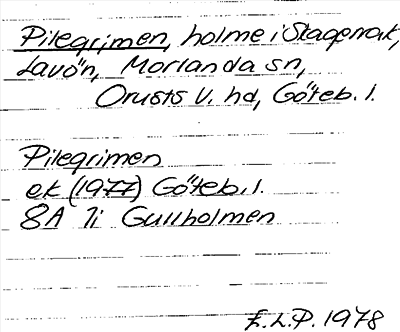 Pilegrimen, holme i Skagerrak,
Lavön, Morlanda sn,
Orusts V. hd, Göteb. l.
Pilegrimen
ek (1977) Göteb. l.
8A 7i Gullholmen
E.L.P. 1978